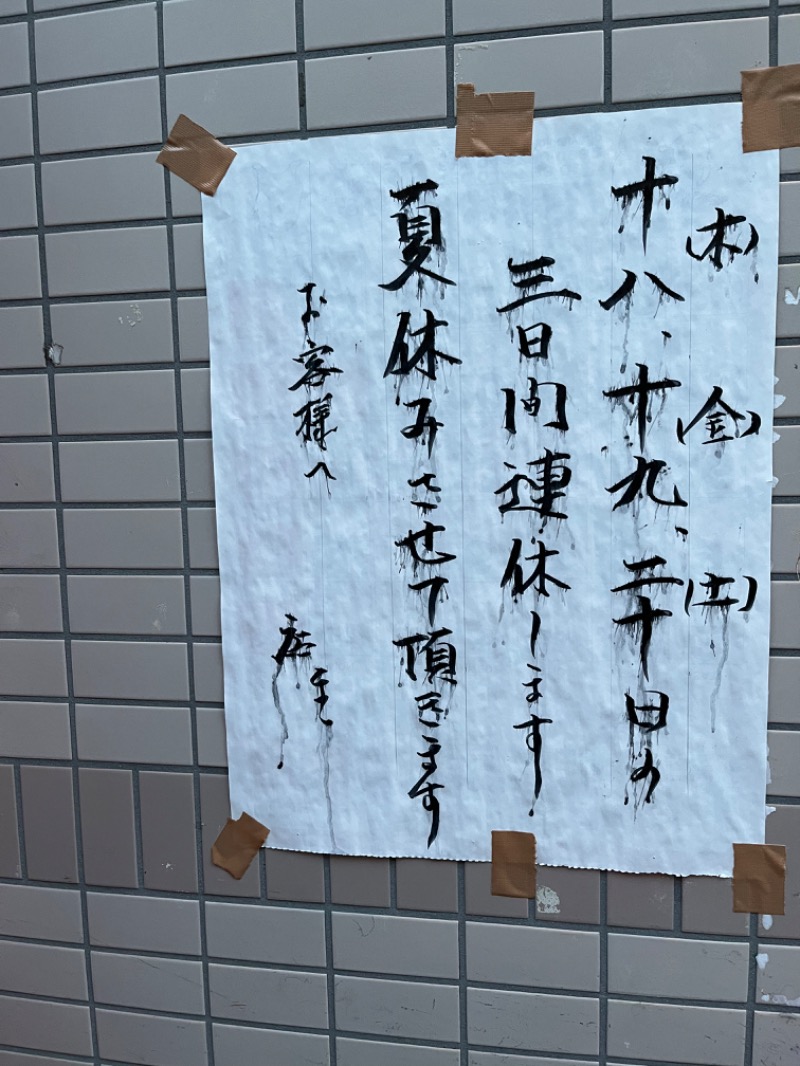 (木) (金) (土)
十八、十九、二十日の
三日間連休します
夏休みさせて頂きます
お客様へ
店主